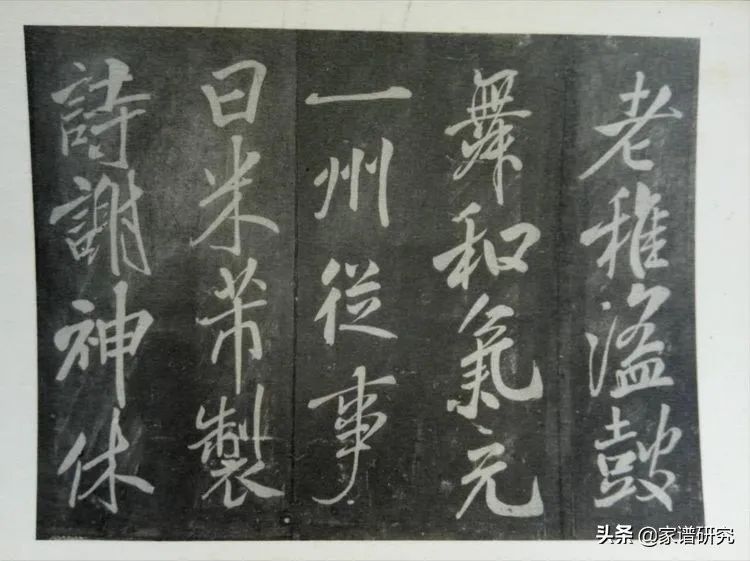 老稚溢鼓
舞和氣充
一州從事
曰米芾製
詩謝神休
头条 @家谱研究